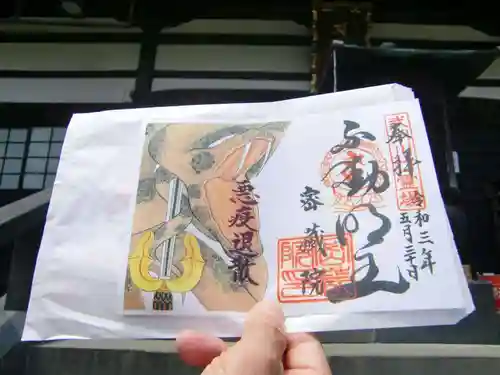 奉拝
令和三年
五月三十日
不動明王
密蔵院
悪疫退散